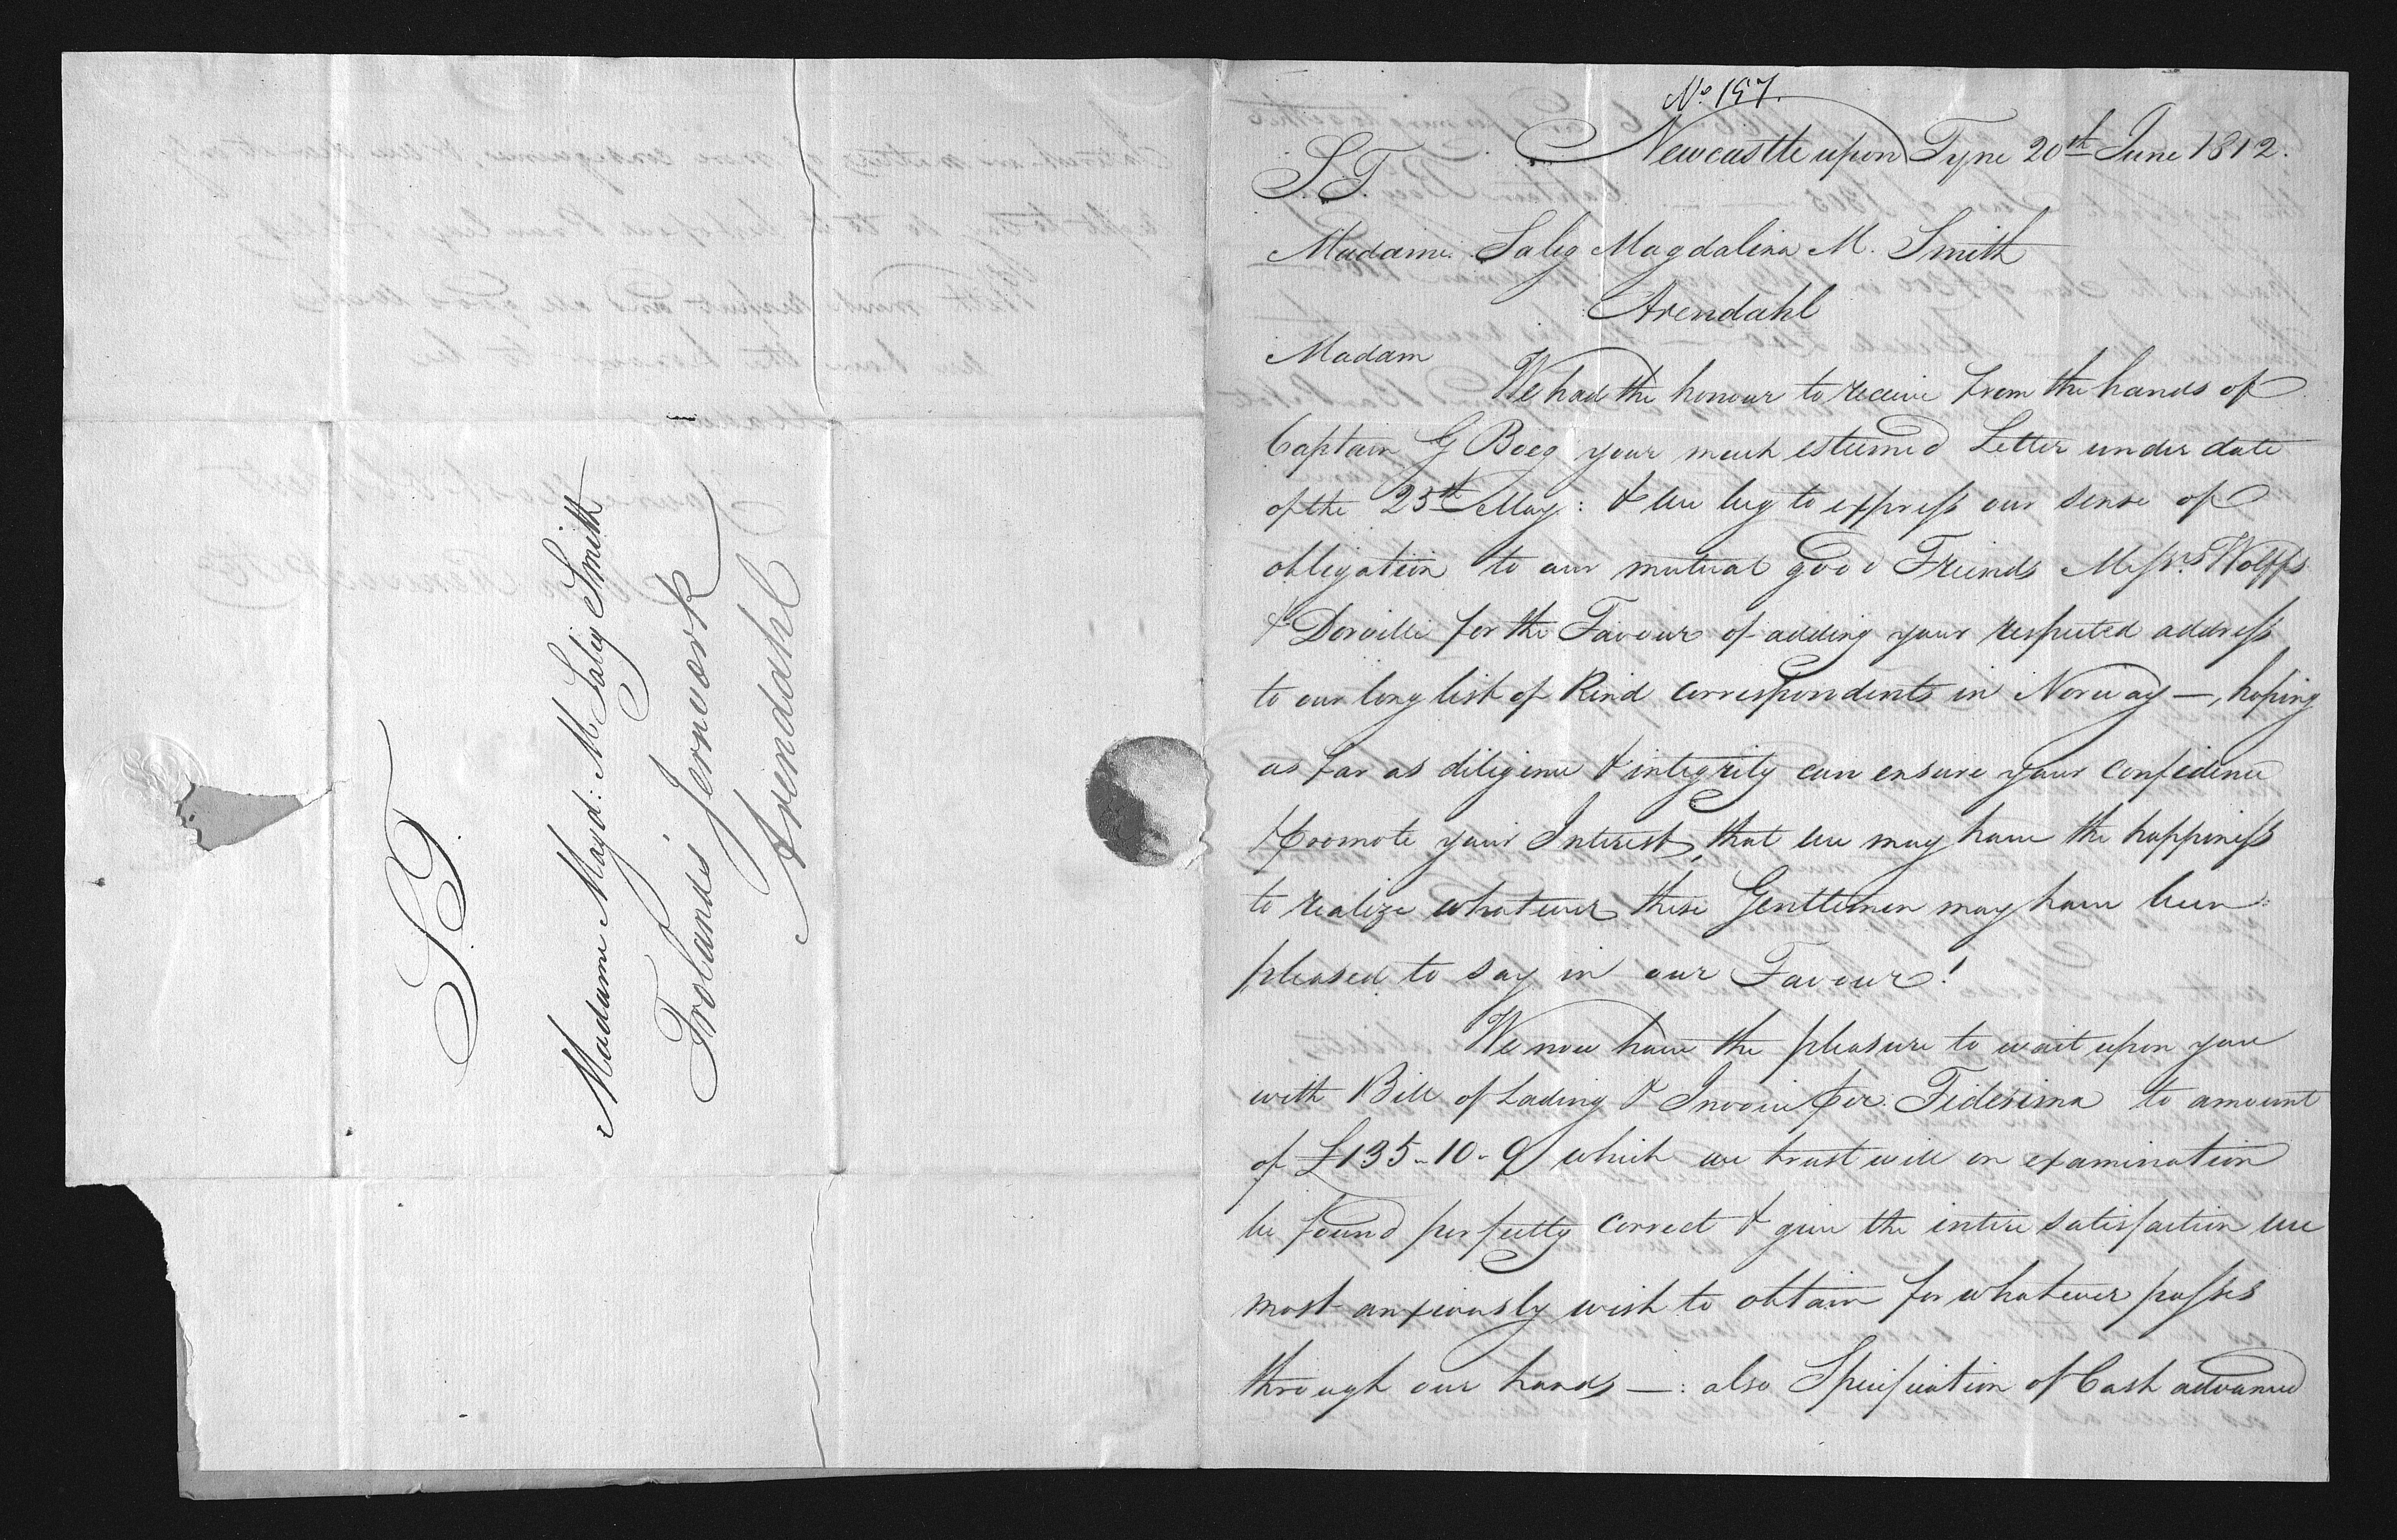 S.T.
Madame Magd: M Salig Smith
Frolands Jernværk
Arendahl
No. 157.
Newcastle upon Tyne 20th June 1812.
S.T.
Madame Salig Magdalina M. Smith
Arendahl
Madam
We had the honour to receive from the hands of
Captain G Boeg your much esteemed Letter under date
of the 25th May: & we beg to express our sense of
obligation to our mutual good Friends Messrs Wolffs
& Dorville for the Favour of adding your respected address
to our long list of kind correspondents in Norway —, hoping
as far as diligence & integrity can ensure your confidence
& promote your Interest, that we may have the happiness
to realize whatever these Gentlemen may have been
pleased to say in our Favour!
We now have the pleasure to wait upon you
with Bill of Lading & Invoice per Fidesima to amount
of £135-10-9 which we trust will on examination
be found perfectly correct & give the intire satisfaction we
most anxiously wish to obtain for whatever passes
through our hands —: also Specification of Cash advanced